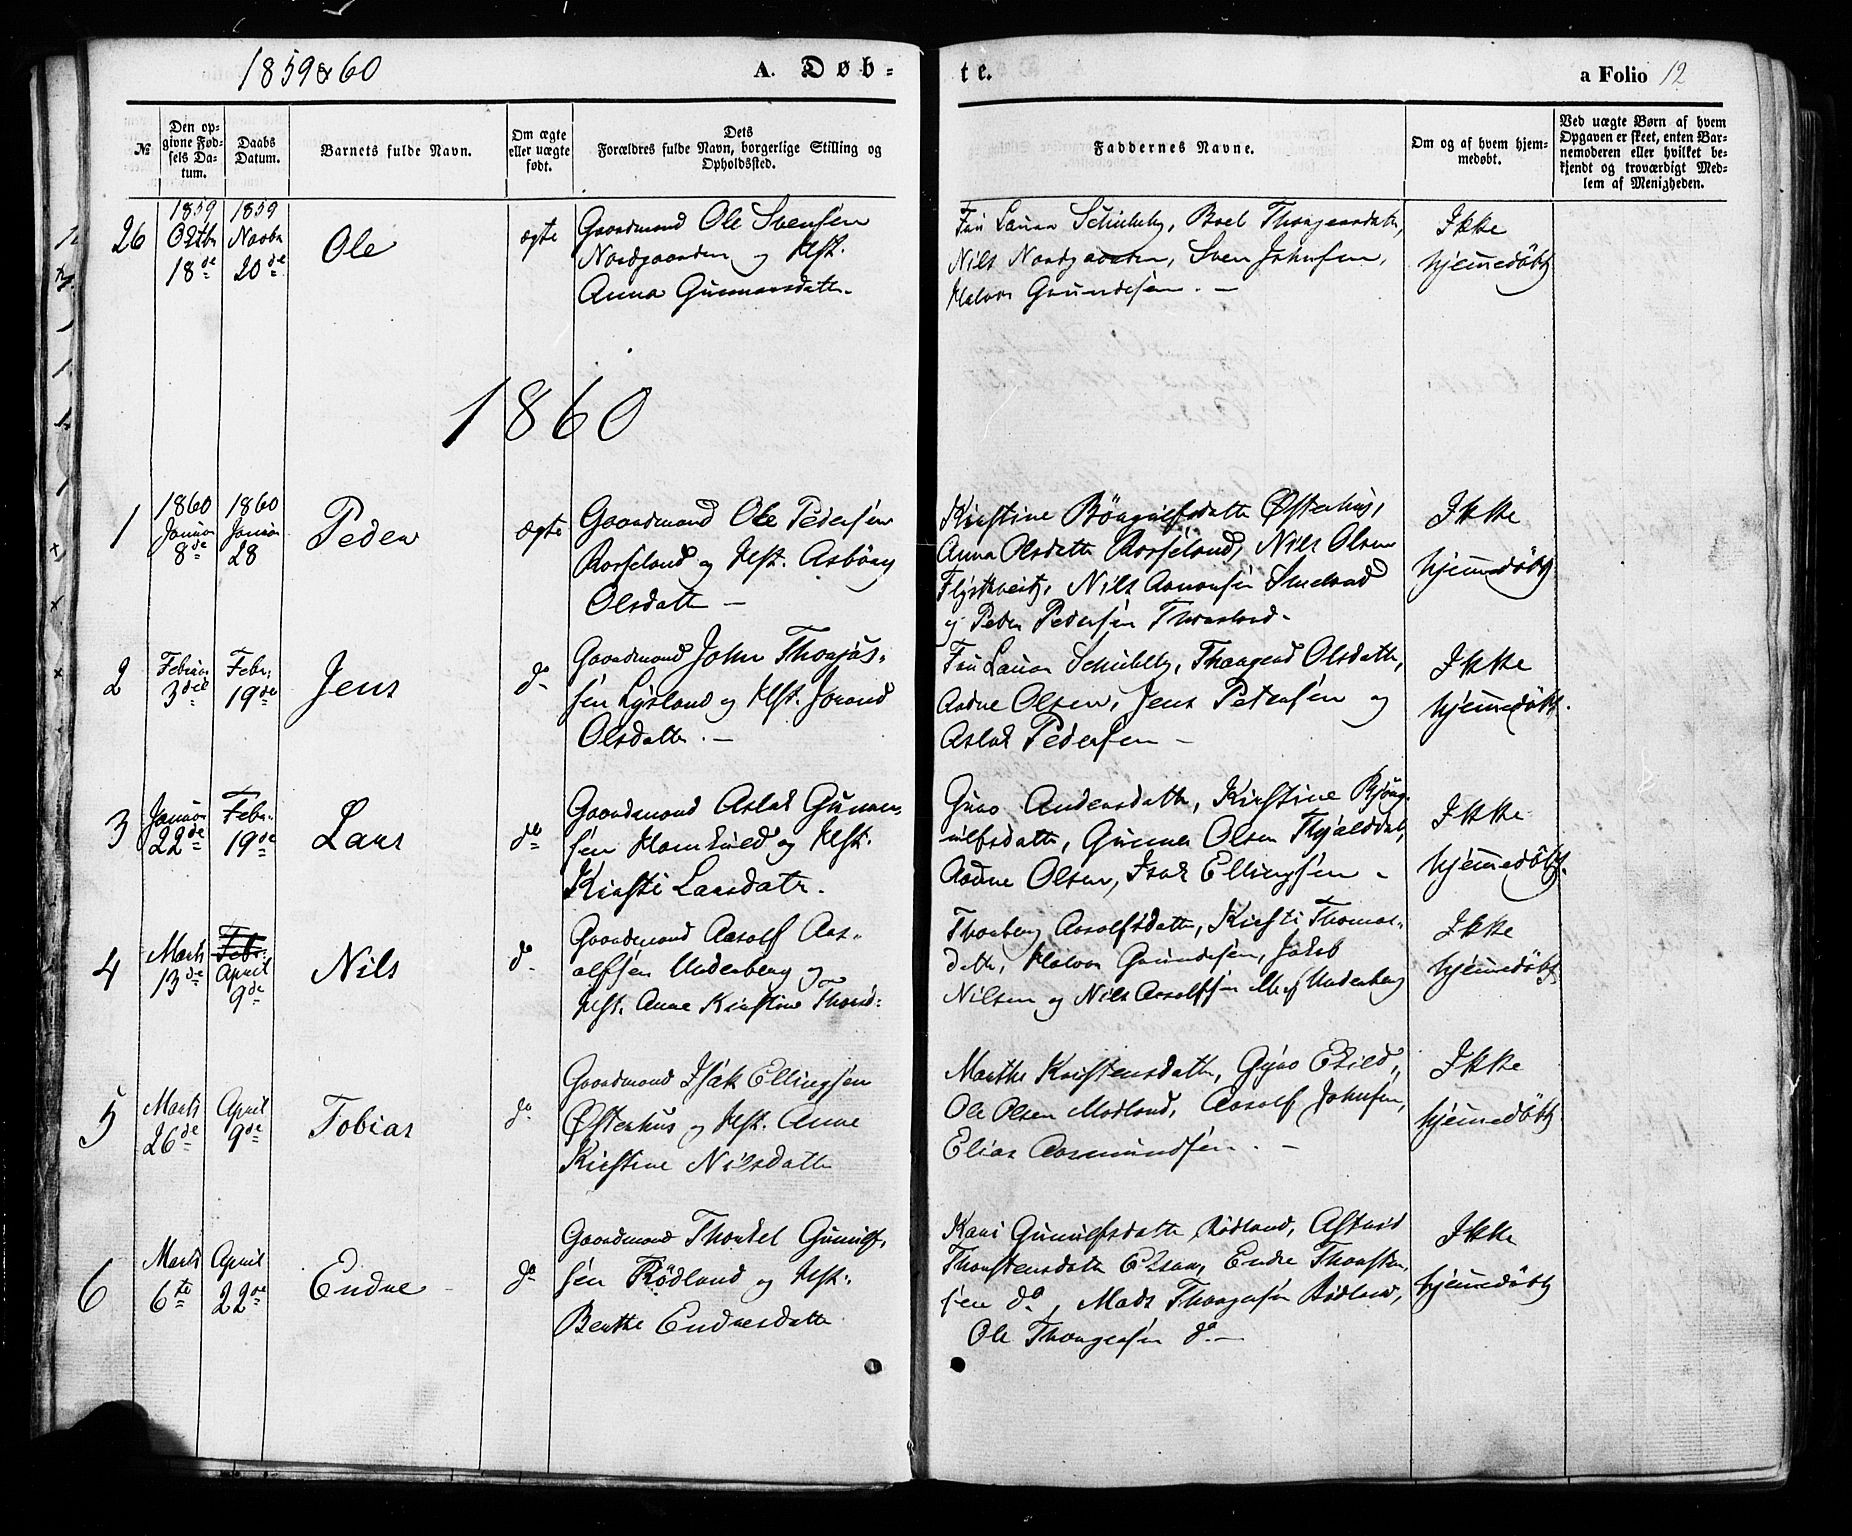 1859 & 60
A. Døb-
te.
a Folio 12
№
Den op-
givne Fød-
sels Da-
tum.
Daabs
Datum.
Barnets fulde Navn.
Om ægte
eller uægte
født.
Dets
Forældres fulde Navn, borgerlige Stilling og
Opholdssted.
Faddernes Navne.
Om og af hvem hjem-
medøbt.
Ved uægte Børn af hvem
Opgaven er skeet, enten Bar-
nemoderen eller hvilket be-
kjendt og troværdigt Med-
lem af Menigheden.
26
1859
Octbr
18de
1859
Novbr
20de
Ole
ægte
Gaardmand Ole Svensen
Nordgaarden og Hst.
Anna Gunnarsdattr.
Fru Laura Schielely, Boel Thorgersdattr,
Nils Nordgaarden, Sven Johnsen,
Halvor Grundesen. —
Ikke
hjemmedøbt
1860
1
1860
Januar
8de
1860
Januar
28
Peder
ægte
Gaardmand Ole Pedersen
Rorseland og Hst. Asbörg
Olsdattr —
Kirstine Böngulfsdattr Østerhus,
Anna Olsdattr Rorseland, Nils Olsen
Flystveit, Nils Aanonsen Smeland
og Peder Pedersen
Ikke
hjemmedøbt
2
Februar
3die
Febr.
19de
Jens
do
Gaardmand John Thorjus-
sen Lysland og Hst. Jorand
Olsdattr. —
Fru Laura Olsdattr,
Aadne Olsen, Jens Petersen og
Aslak Pedersen —
Ikke
hjemmedøbt.
3
Januar
22de
Febr.
19de
Lars
do
Gaardmand Aslak Gunnar-
sen Homkild og Hst.
Kirsti Larsdatr.
Guro Andersdattr, Kirstine Bjöng-
ulfsdattr, Gunnar Olsen
Aadne Olsen, Isak Ellingsen -
Ikke
hjemmedøbt.
4
Marts
13de
Febr:
April
9de
Nils
do
Gaardmand Aasolf Aas-
olfsen Underberg og
Hst. Anne Kirstine
Thorberg Aasolfsdattr, Kirsti Thomas-
dattr, Halvor Grundesen, Jakob
Nilsen og Nils Aasolfsen Underberg
Ikke
hjemmedøbt.
5
Marts
26de
April
9de
Tobias
do
Gaardmand Isak Ellingsen
Østerhus og Hst. Anne
Kirstine Nilsdattr
Marthe Kristensdattr,
Ole Olsen Modland, Aasolf Johnsen,
Elias Aasmundsen. —
Ikke
hjemmedøbt
6
Marts
6te
April
22de
Endre
do
Gaardmand Thorkel Gunulf-
sen Rödland og Hst.
Berthe Endresdattr
Kari Gunulfsdattr Rödland, Astrid
Thorstensdattr Endre Thorsten-
sen do, Mads Thorgersen Rödland,
Ole Thorgersen do —
Ikke
hjemmedøbt